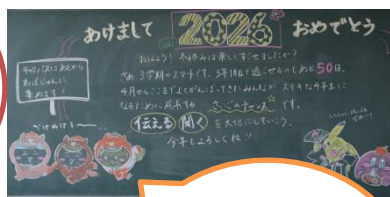 あけまして 2026 おめでとう
おはよう! 冬休みは楽しくすごせましたか?
さあ、3学期のスタートです。3年1組で過ごせるのもあと50日。
4月からここまでよくがんばってきたみんなが、ステキな4年生に
なるために成長する さいごのチャンス です。
伝える 聞く を大切にしていこう。
今年もよろしくね!!
あとから
集めます!